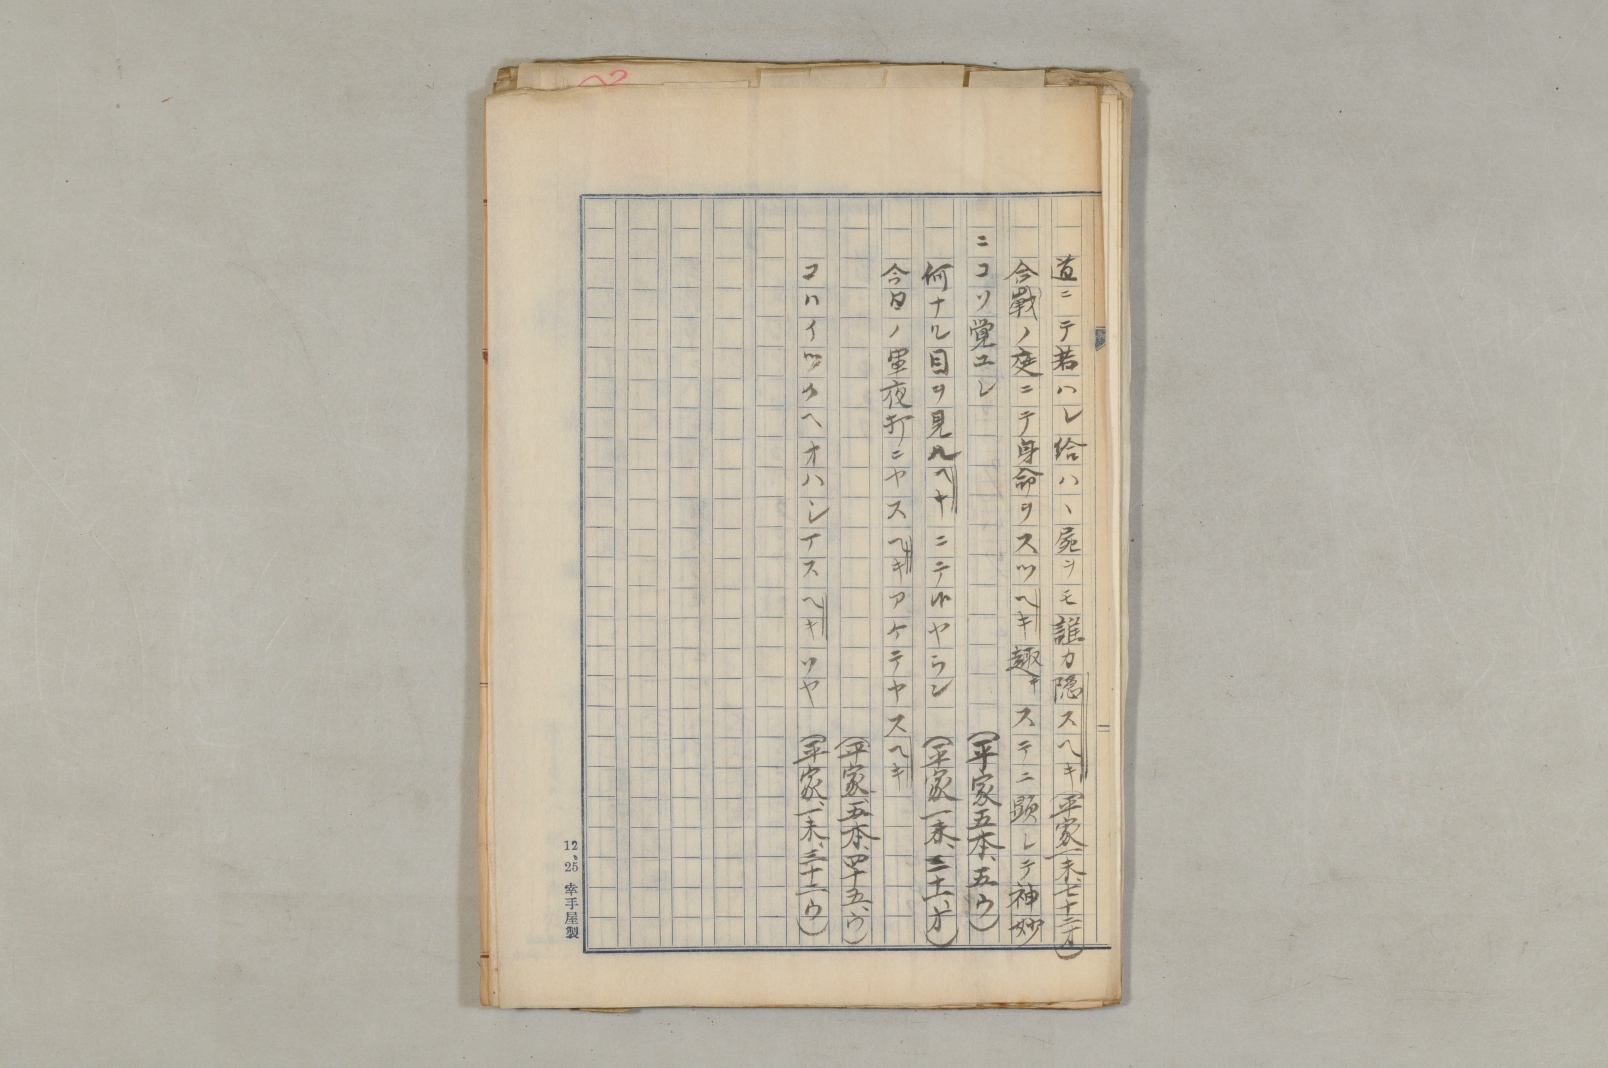 道ニテ若ハレ給ハヽ屍ヲモ誰カ隠スヘキ(平家一末、七十二オ)
合戦ノ庭ニテ身命ヲスツヘキ趣キステニ顕レテ神妙
ニコソ覚エレ(平家五本、五ウ)
何ナル目ヲ見ルヘキニテ ヤラン(平家一末、二十一、オ)
今日ノ軍夜打ニヤスヘキアケテヤスヘキ
(平家五本、四十五、ウ)
コハイツクヘオハシマスヘキソヤ(平家一末、三十二ウ)
12、25 幸手屋製